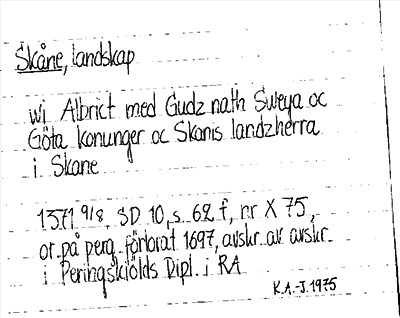 Skåne, landskap
wi Albrict med Gudz nath Sweya oc
Göta konunger oc Skanis landzherra
i Skane
1371 9/8, SD 10, s. 62 f, nr X 75,
or. på perg. förlorat 1697, avskr. av avskr.
i Peringskiölds Dipl. i RA
K.A.-J. 1975